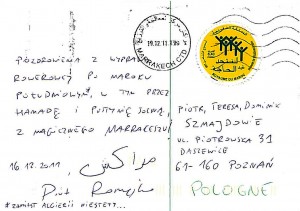 POZDROWIENIA Z WYPRAWY
ROWEROWEJ PO MAROKU
POŁUDNIOWYM, W TYM PRZEZ
HAMADĘ I PUSTYNIĘ SOLNĄ,
Z MAGICZNEGO MARRAKESZU
مراكش
16.12.2011
Piotr
*ZAMIAST ALGIERII NIESTETY...
19.12.11
MARRAKECH CTD
PIOTR, TERESA, DOMINIK
SZMAJDOWIE
UL. PIOTROWSKA 31
DASZEWICE
61-160 POZNAŃ
POLOGNE